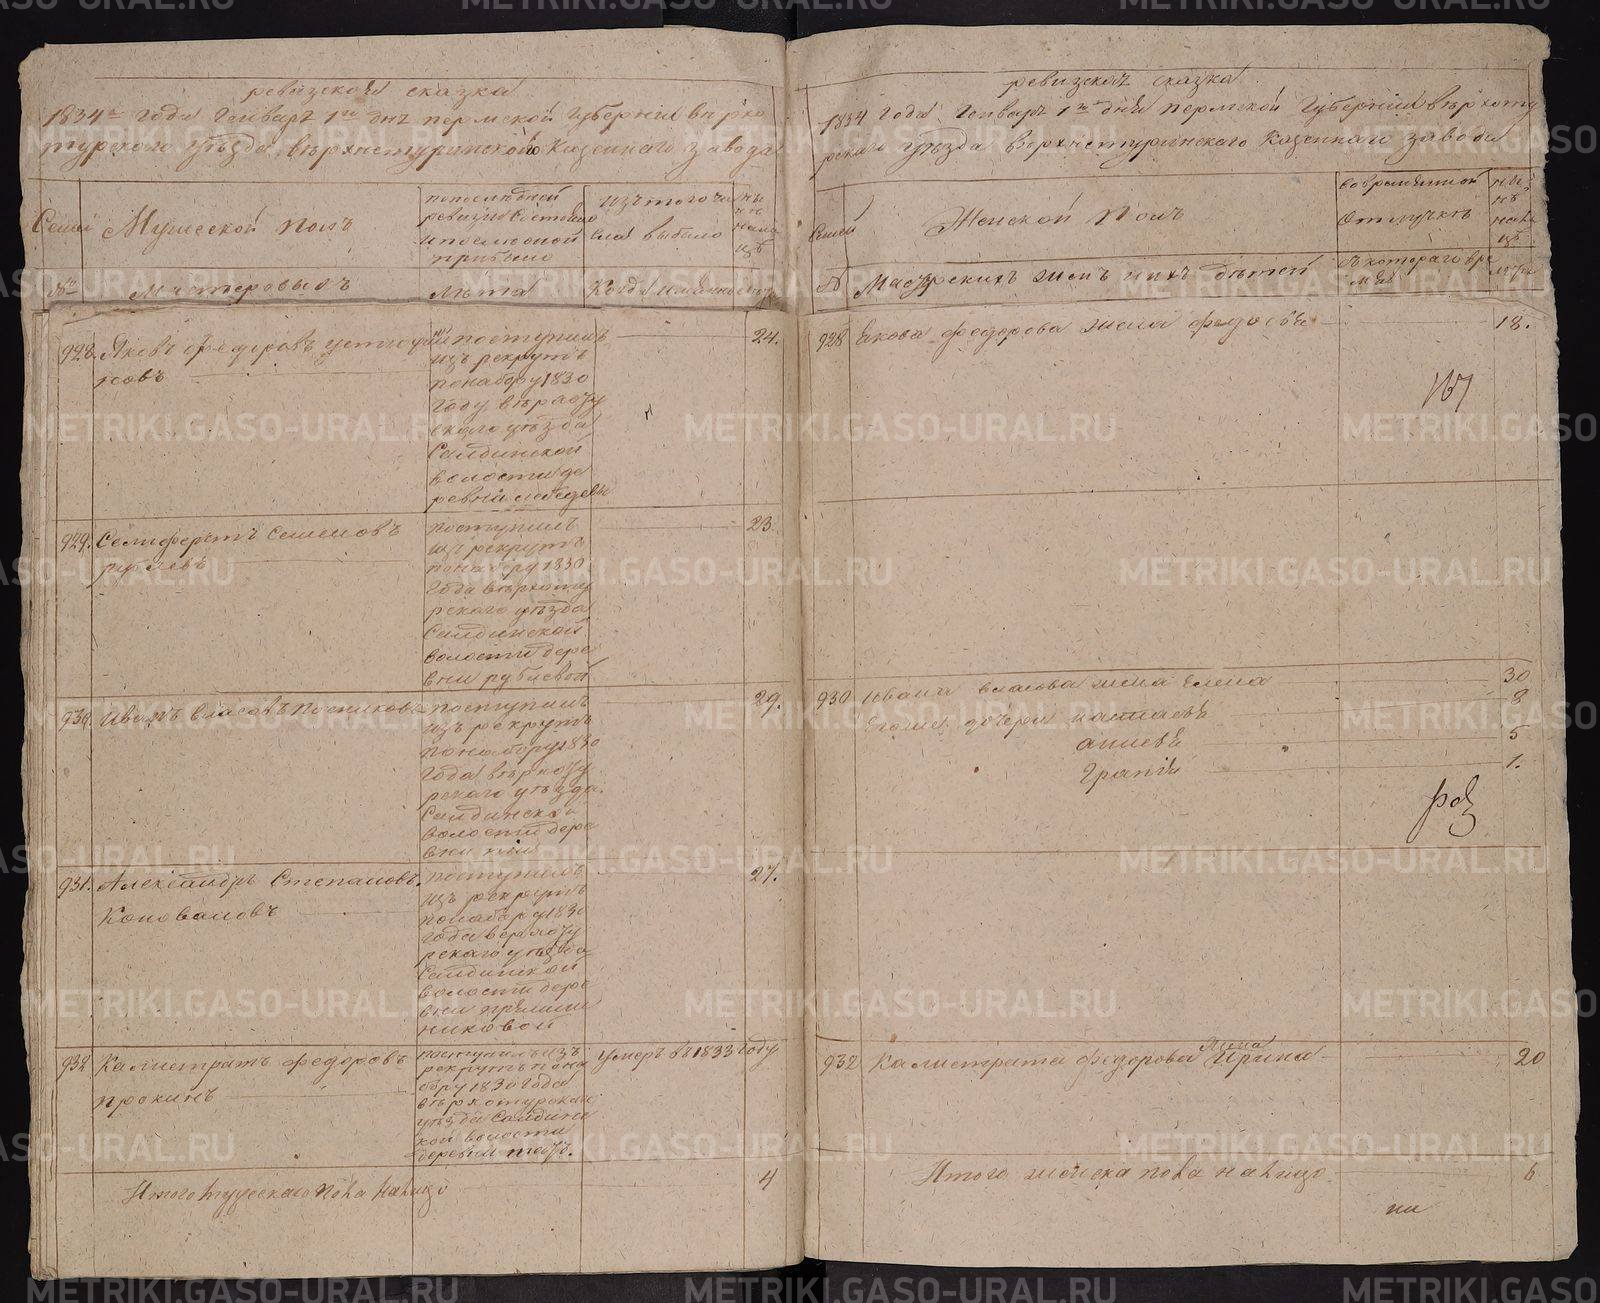 ревизская сказка
1834го года Генваря 1го дня пермской Губернии верхо
турского уезда верхнетуринского Казенного завода
Семьи
Мужеской полъ
по последней
ревизии состояло
и после оной
прибыло
изъ того чи
сла выбыло
ны
не
нали
цо
№
Мастеровыхъ
Лѣта
Когда именно
928. Яковъ Федоровъ устюжа
новъ
поступилъ
изъ рекрутъ
по набору 1830
году верхоту
рскаго уѣзда
Салдинской
волости де
ревни
24.
929. Селиферстъ Семеновъ
поступилъ
изъ рекрутъ
по набору 1830
года верхоту
рскаго уѣзда
Салдинской
волости дере
вни рублевой
23
930. Иванъ Власовъ Постниковъ
поступилъ
изъ рекрутъ
по набору 1830
года верхоту
рскаго уѣзда
Салдинской
волости дере
вни
29.
931. Александръ Степановъ
Коноваловъ
поступилъ
изъ рекрутъ
по набору 1830
года верхоту
рскаго уѣзда
Салдинской
волости дере
вни прянични
никовой
27.
932 Калистратъ Федоровъ
прокинъ
поступилъ изъ
рекрутъ по на
бору 1830 года
верхотурскаго
уѣзда Салдинс
кой волости
деревни
умеръ въ 1833 году
Итого мужескаго пола налицо
4
ревизская сказка
1834 года Генваря 1го дня пермской Губернии верхоту
рскаго уѣзда верхнетуринского Казеннаго завода
Семьи
Женской полъ
во временной
отлучкѣ
ны
нѣ
нали
цѣ
№
Мастерскихъ женъ и ихъ детей
съ котораго вре
мя
лѣта
928 Якова Федорова жена Федосья
18.
930 Ивана Власова жена Елена
30
Его же дочери наталья
8
анисья
5
1.
932 Калистрата Федорова жена Ирина
20
Итого женска пола налицо
6